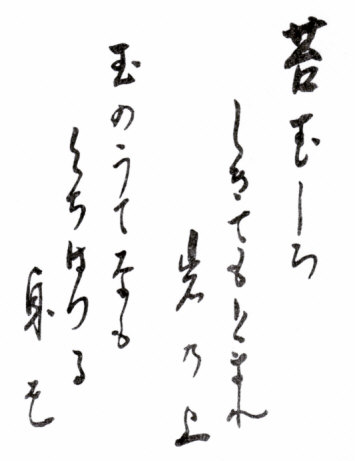 苔むしろ
しきてもとまれ
岩乃上
玉のうてなも
くちはつる
身を